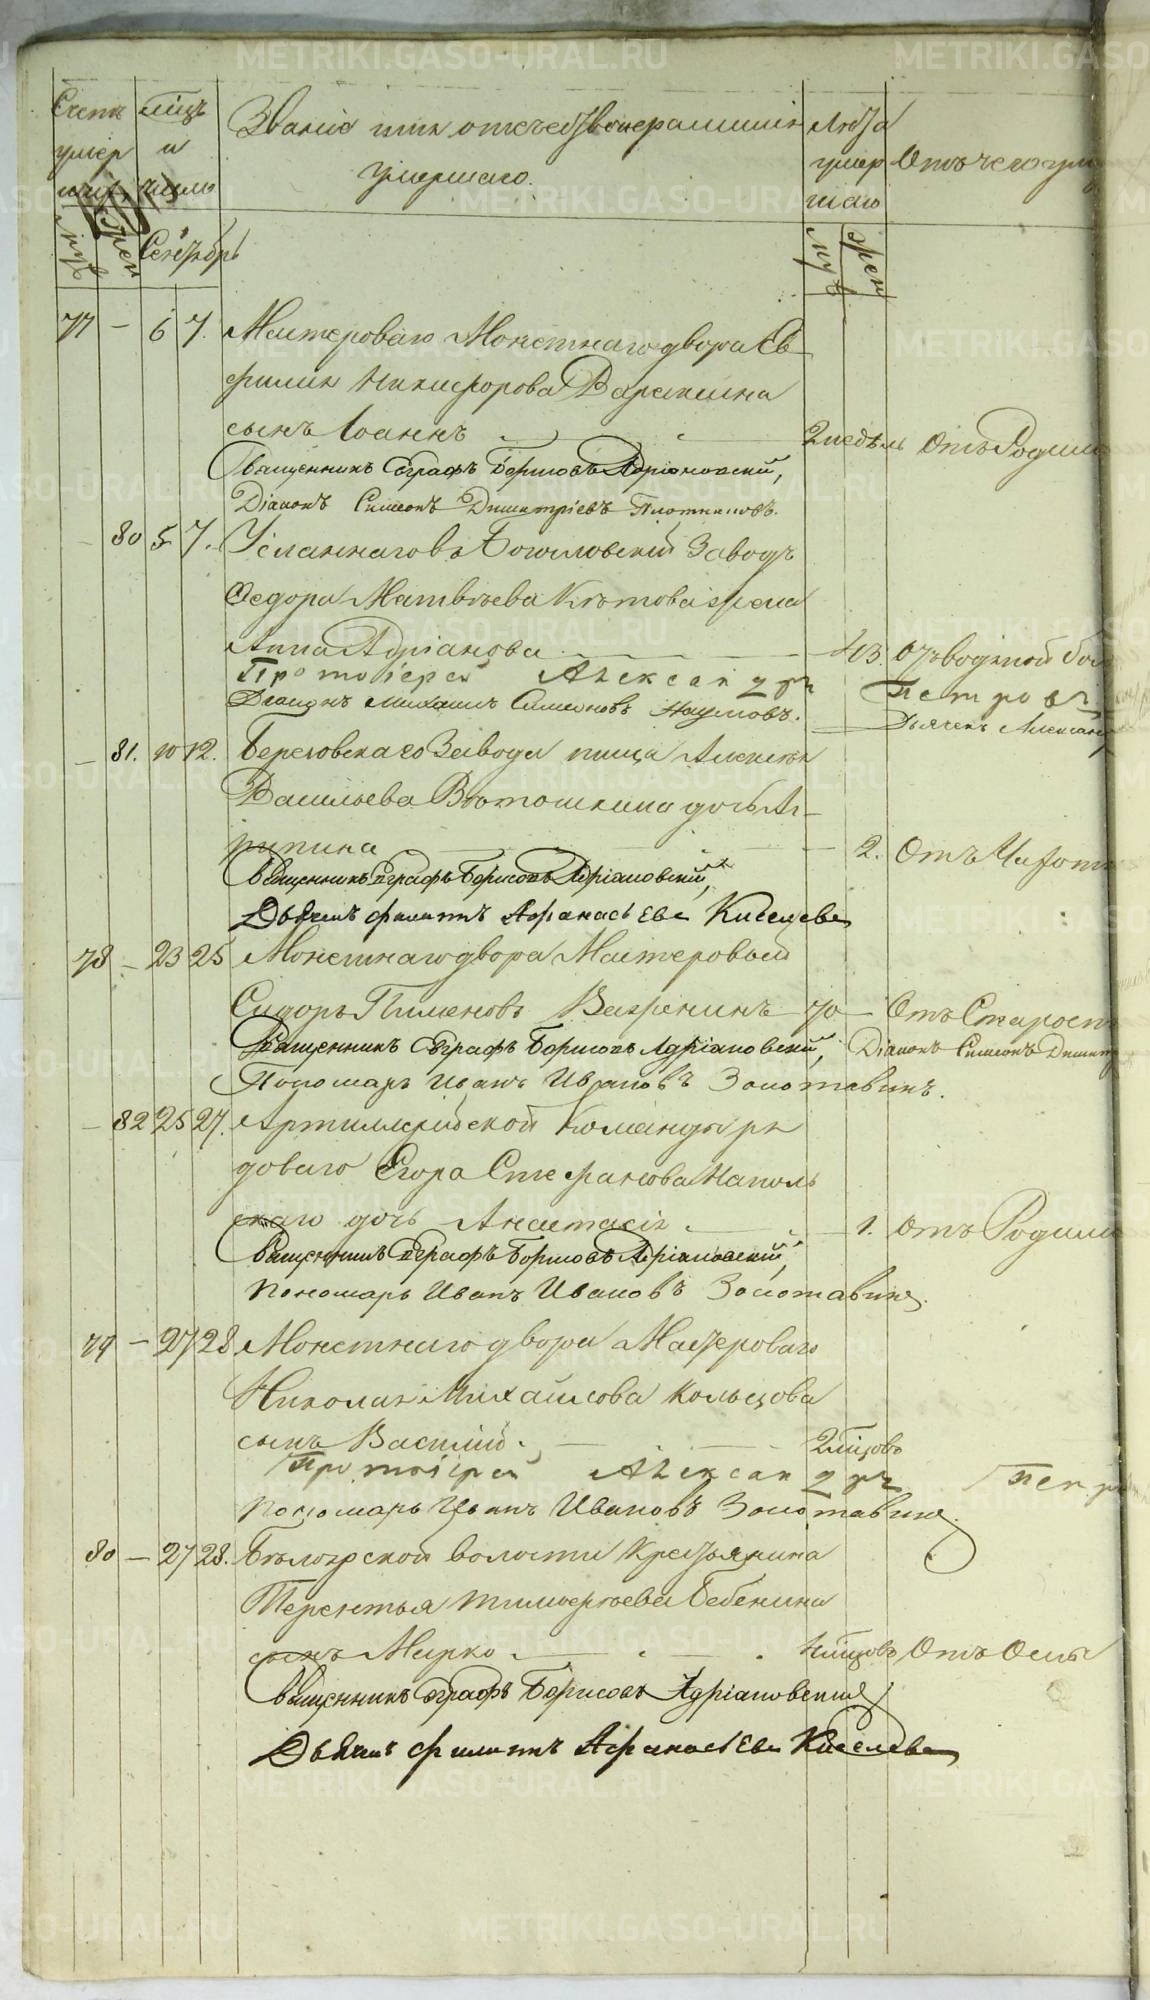 Счетъ умер шихъ
мѣсцъ и число
Званiе имя отечество и фамилия
умершаго.
Лѣта умер шаго
Отъ чего ум
муж
жен
Сентябрь
муж
жен
77 – 6 7. Мастероваго Монетнаго двора Ев
фимия Никифорова Варакина
сынъ Iоаннъ 2 недѣль Отъ Родим
Священникъ Евграфъ Борисовъ Адрiановскiй,
Дiаконъ Симеонъ Димитрiевъ Плотниковъ.
– 80 5 7. Усланнаго въ Богословскiй Заводъ
Федора Матвѣева Кѣтова жена
Анна Адрiанова 43. Отъ водяной бол
Протоiерей Александръ Петровъ
Дiаконъ Михаилъ Симеоновъ Наумовъ. Дьячекъ Александ
– 81. 10 12. Березовскаго Завода писца Алексѣя
Васильева Вѣтошкина дочь Аг–
рипина 2. Отъ Чахот
Священникъ Евграфъ Борисовъ Адрiановскiй,
Дьячекъ Филиппъ Афанасьевъ Киселевъ
78 – 23 25 Монетнаго двора Мастеровый
Сидоръ Пименовъ 70 – Отъ Старост
Священникъ Евграфъ Борисовъ Адрiановскiй, Дiаконъ Симеонъ Димит
Пономарь Иванъ Ивановъ Золотавинъ.
– 82 25 27. Артиллерiйской Команды ря
доваго Егора Стефанова Наполь
скаго дочь Анастасiя 1. Отъ Родим
Священникъ Евграфъ Борисовъ Адрiановскiй,
Пономарь Иванъ Ивановъ Золотавинъ.
79 – 27 28 Монетнаго двора Мастероваго
Николая Михайлова Кольцова
сынъ Василiй. 2 мѣсцовъ
Протоiерей Александръ Петр
Пономарь Иванъ Ивановъ Золотавинъ.
80 – 27 28. Бѣлоярской волости Крестьянина
Терентья Тимофеева Бебенина
сынъ Марко 4 мѣсцовъ Отъ Оспы
Священникъ Евграфъ Борисовъ Адрiановский
Дьячекъ Филиппъ Афанасьевъ Киселевъ
METRIKI.GASO-URAL.RU